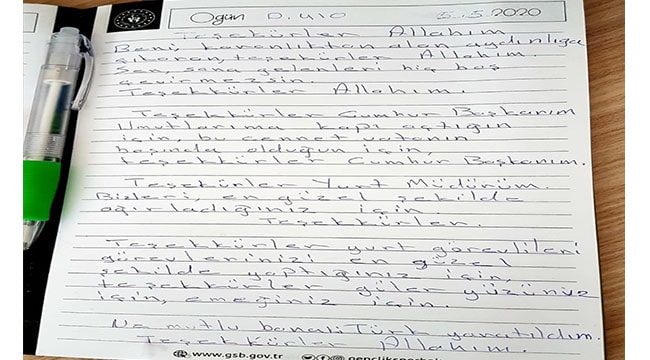 Ogün D. U10 5.5.2020
Teşekürler Allahım
Beni, karanlıktan alan aydınlığa
çıkaran, teşekürler Allahım.
Sen, sana gelenleri hiç boş
çevirmezsin.
Teşekürler Allahım.
Teşekkürler Cumhur Başkanım
Umutlarıma kapı açtığın
için, bu cennet vatanın
başında olduğun için
teşekkürler Cumhur Başkanım.
Teşekürler Yurt Müdürüm.
Bizleri, en güzel şekilde
ağırladığınız için.
Teşekürler.
Teşekkürler yurt görevlileri
görevlerinizi en güzel
şekilde yaptığınız için,
teşekkürler güler yüzünüz
için, emeğiniz için.
Ne mutlu bana! Türk yaratıldım.
Teşekürler Allahım.
www.gsb.gov.tr